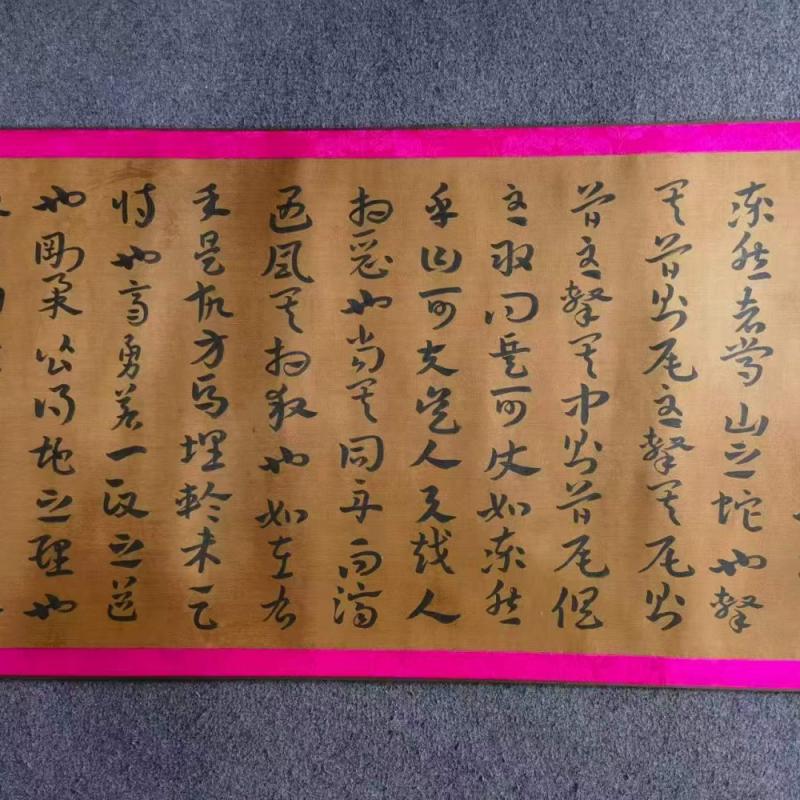 率然者常山之蛇也擊
其首則尾至擊其尾則
首至擊其中則首尾俱
至敢問兵可使如率然
乎曰可夫吳人與越人
相惡也當其同舟而濟
遇風其相救也如左右
手是故方馬埋輪未足
恃也齊勇若一政之道
也剛柔皆得地之理也